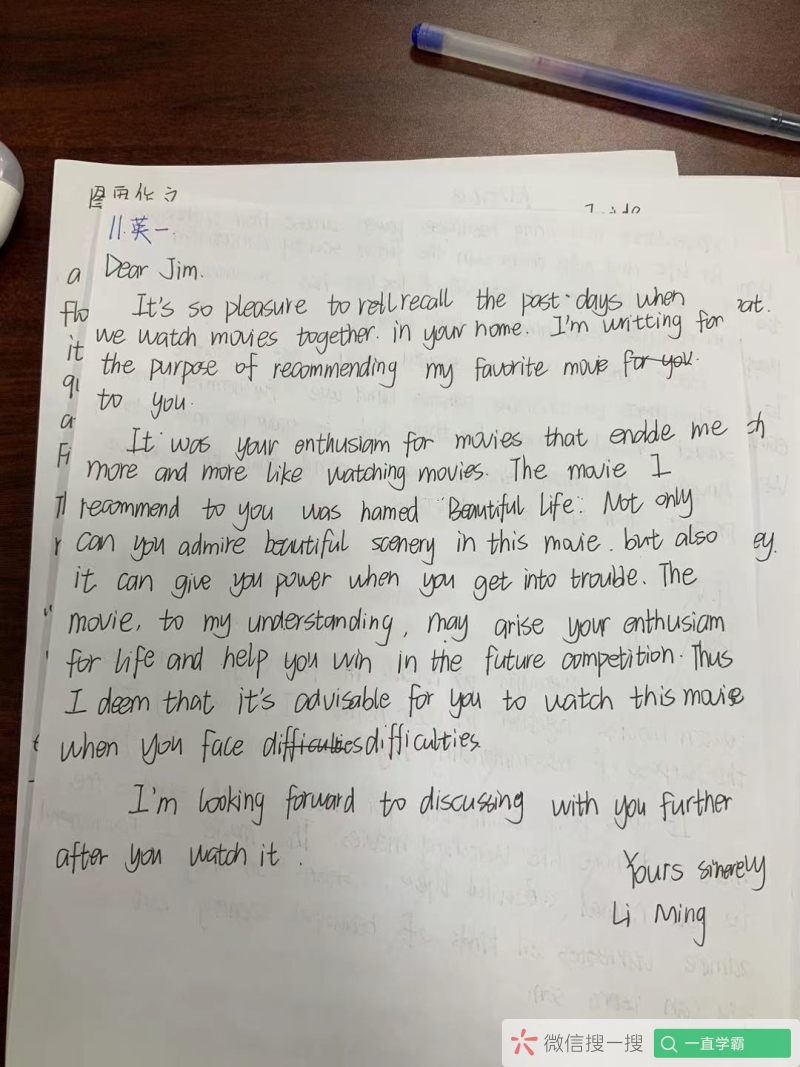 图画作文
11.英一
Dear Jim.
It's so pleasure to rell recall the past days when
we watch movies together. in your home. I'm writting for
the purpose of recommending my favorite movie for you.
to you.
It was your enthusiam for movies that endde me
more and more like watching movies. The movie I
recommend to you was hamed "Beautiful life". Not only
can you admire beautiful scenery in this movie. but also
it can give you power when you get into trouble. The
movie, to my understanding, may arise your enthusiam
for life and help you win in the future competition. Thus
I deem that it's advisable for you to watch this movie
when you face difficulties difficulties.
I'm looking forward to discussing with you further
after you watch it.
Yours sinerely
Li Ming
微信搜一搜
一直学霸